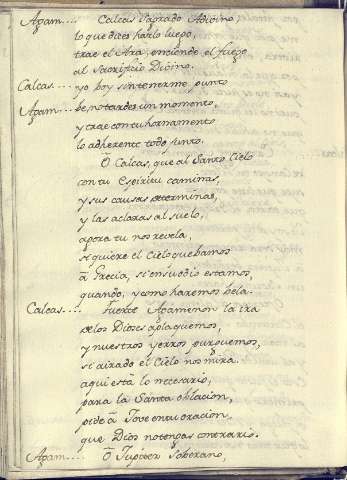 Agam.... Calcas Sagrado Adivino,
lo que dices harlo luego,
trae el Ara, enciende el fuego
al Sacrificio Divino.
Calcas.... yo boy sin tenerme punto
Agam.... be, no tardes un momento,
y trae con tu hornamento
lo adherente todo junto.
O Calcas, que al Santo Cielo
con tu Espiritu caminas,
y sus causas determinas,
y las aclaras al suelo,
agora tu nos revela,
si quiere el Cielo que bamos
à Grecia, si en su odio estamos,
quando, y como haremos bela.
Calcas.... Fuerte Agamenon la ira
de los Dioses aplaquemos,
y nuestros yerros purguemos,
si airado el Cielo nos mira.
aqui està lo necesario,
para la Santa oblacion,
pide à Jove en tu oracion,
que Dios no tengas contrario.
Agam.... O Jupiter Soberano,